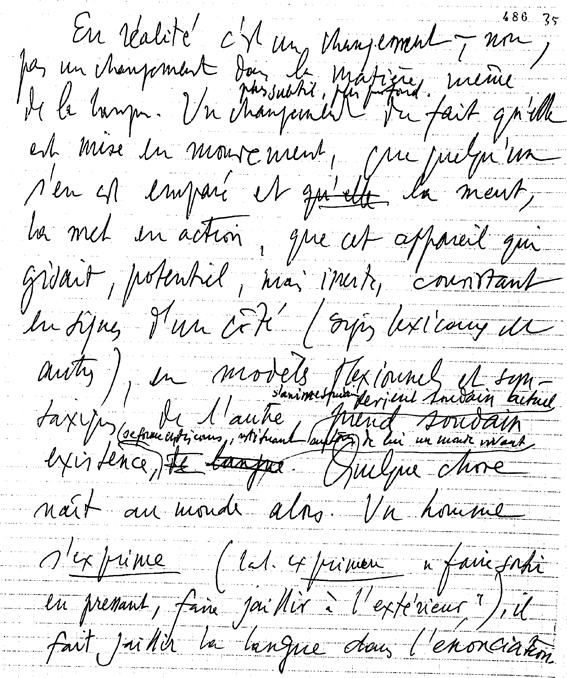 486 35
En réalité c'est un changement –, non,
pas un changement dans la matière même
plus subtil, plus profond.
de la langue. Un changement du fait qu'elle
est mise en mouvement, que quelqu'un
s'en est emparé et qu'elle la meut,
la met en action, que cet appareil qui
gisait, potentiel, mais inerte, consistant
en signes d'un côté (signes lexicaux et
autres), en modèles flexionnels et syn-
s'anime soudain devient soudain actuel,
taxiques de l'autre prend soudain
se forme en discours, restituant autour de lui un monde vivant
existence, la langue. Quelque chose
naît au monde alors. Un homme
s'exprime (lat. exprimere « faire sortir
en pressant, faire jaillir à l'extérieur »), il
fait jaillir la langue dans l'énonciation